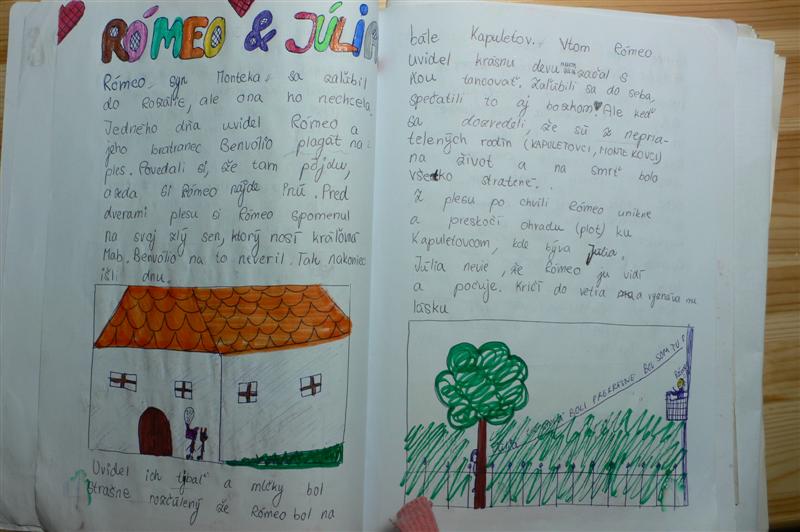 RÓMEO & JÚLIA
Rómeo, syn Monteka, sa zaľúbil
do Rozálie, ale ona ho nechcela.
Jedného dňa uvidel Rómeo a
jeho bratranec Benvolio plagát na
ples. Povedali si, že tam pôjdu,
a teda si Rómeo nájde inú. Pred
dverami plesu si Rómeo spomenul
na svoj zlý sen, ktorý nosí kráľovná
Mab. Benvolio na to neveril. Tak nakoniec
išli dnu.
Uvidel ich Tybalt a mlčky bol
strašne rozčúlený že Rómeo bol na
bále Kapuletov. Vtom Rómeo
uvidel krásnu devu začal s
ňou tancovať. Zaľúbili sa do seba,
spečatili to aj bozkom. Ale keď
sa dozvedeli, že sú z nepria-
telených rodín (KAPULETOVCI, MONTEKOVCI)
na život a na smrť bolo
všetko stratené.
Z plesu po chvíli Rómeo unikne
a preskočí ohradu (plot) ku
Kapuletovcom, kde býva Júlia.
Júlia nevie, že Rómeo ju vidí
a počuje. Kričí do vetra a vyznáva mu
lásku
BOLI PREKRÁSNE BOL SOM TU!